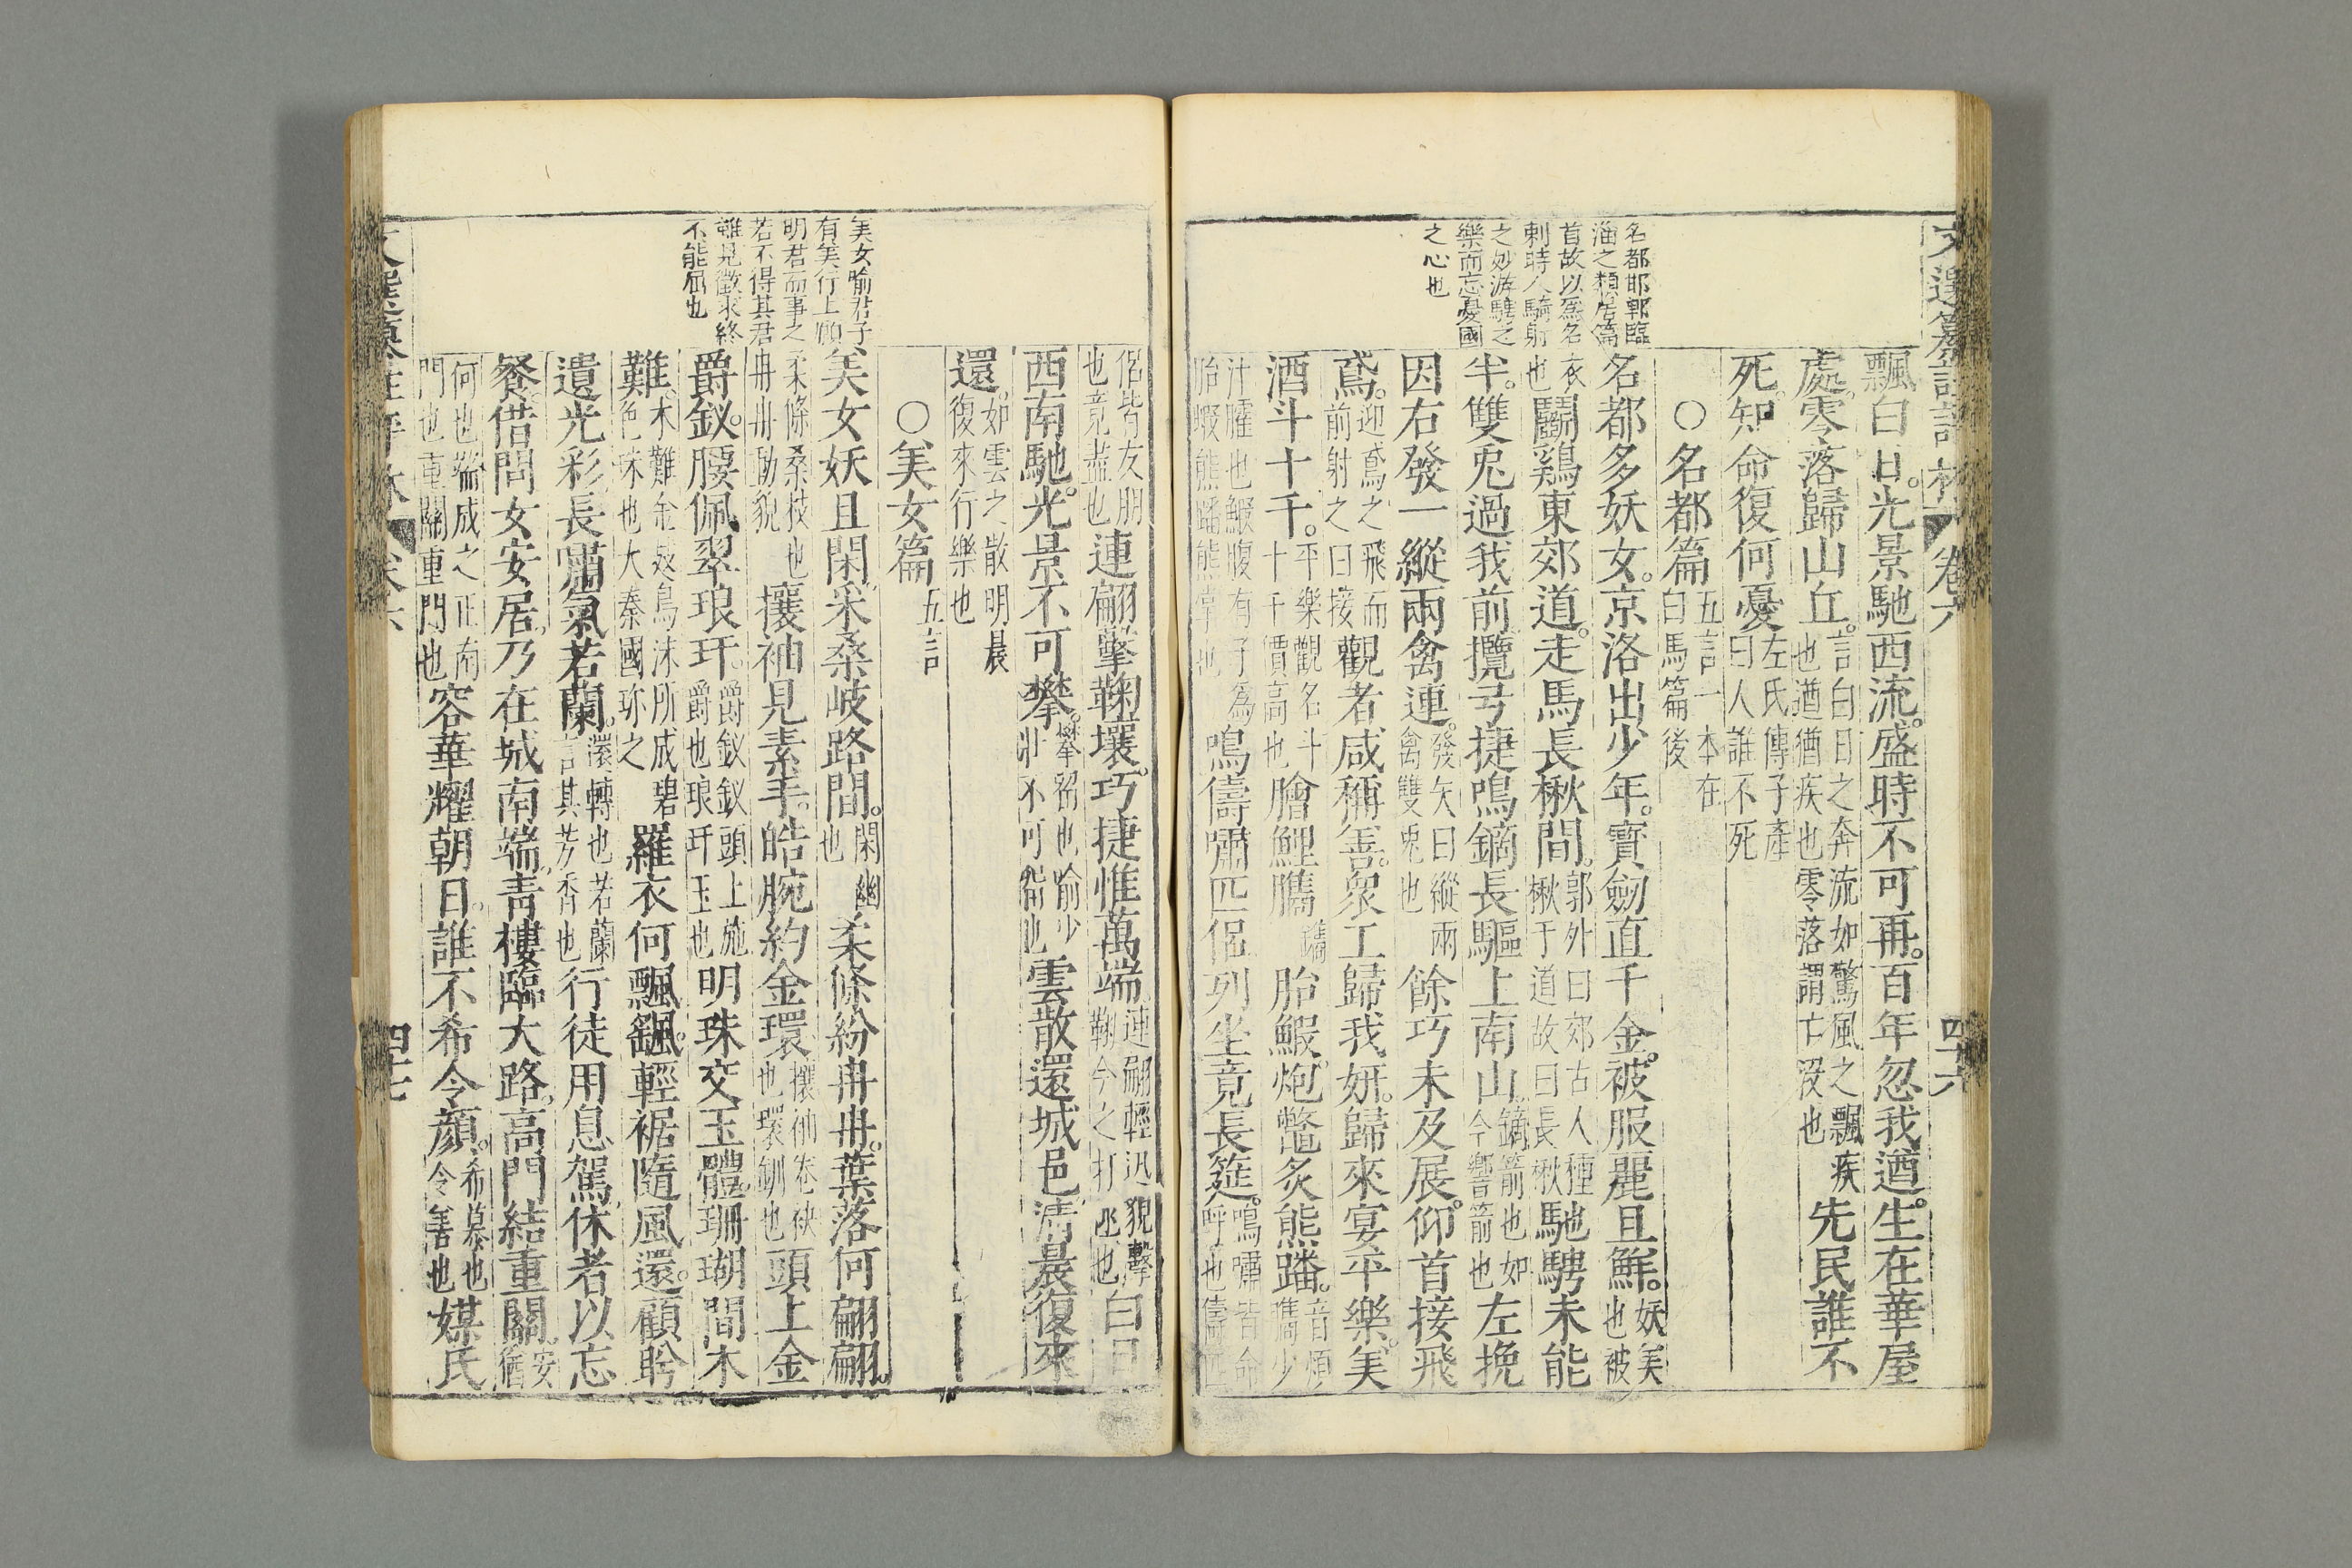 文選纂註評林 卷六 四十六
飄白日。光景馳西流。盛時不可再。百年忽我遒。生在華屋
處。零落歸山丘。言白日之奔流如驚風之飄疾也遒猶疾也零落謂亡沒也先民誰不
死。知命復何憂左氏傳子產曰人誰不死
○名都篇五言一本在白馬篇後
名都邯鄲臨
淄之類居篇
首故以爲名
刺時人騎射
之妙游騁之
樂而忘憂國
之心也
名都多妖女。京洛出少年。寶劒直千金。被服麗且鮮。妖美也被
衣也鬭鷄東郊道。走馬長楸間。郭外曰郊古人種楸于道故曰長楸馳騁未能
半。雙兎過我前攬弓捷鳴鏑長驅上南山。鏑箭也如今響箭也左挽
因右發一縱兩禽連。發矢曰縱兩禽雙兎也餘巧未及展。仰首接飛
鳶。迎鳶之飛而前射之曰接觀者咸稱善。衆工歸我妍。歸來宴平樂。美
酒斗十千。平樂觀名斗十千價高也膾鯉臇胎鰕。炮鼈炙熊蹯。音煩臇少
汁臛也鰕腹有子爲胎蝦熊蹯熊掌也鳴儔嘯匹侶列坐竟長筵。鳴嘯皆命呼也儔匹
侶皆友朋也竟盡也連翩擊鞠壤。巧捷惟萬端連翩輕迅貌擊鞠今之打毬也白日
西南馳。光景不可攀。攀留也喻少壯不可留也雲散還城邑。清晨復來
還。如雲之散明晨復來行樂也
○美女篇五言
美女喻君子
有美行上願
明君而事之
若不得其君
雖見徵求終
不能屈也
美女妖且閑采桑岐路間。閑幽也柔條紛冉冉。葉落何翩翩。
柔條桑枝也冉冉動貌攘袖見素手。皓腕約金環攘袖卷袂也環釧也頭上金
爵釵。腰佩翠琅玕。爵釵釵頭上施爵也琅玕玉也明珠交玉體。珊瑚間木
難。木難金翅鳥沫所成碧色珠也大秦國珎之羅衣何飄飄。輕裾隨風還。顧盻
遺光彩長嘯氣若蘭。還轉也若蘭言其芳香也行徒用息駕休者以忘
餐。借問女安居。乃在城南端。青樓臨大路。高門結重關。安猶
何也端城之正南門也重關重門也容華耀朝日。誰不希令顔。希慕也令善也媒氏
文選纂註評林 卷六 四十七